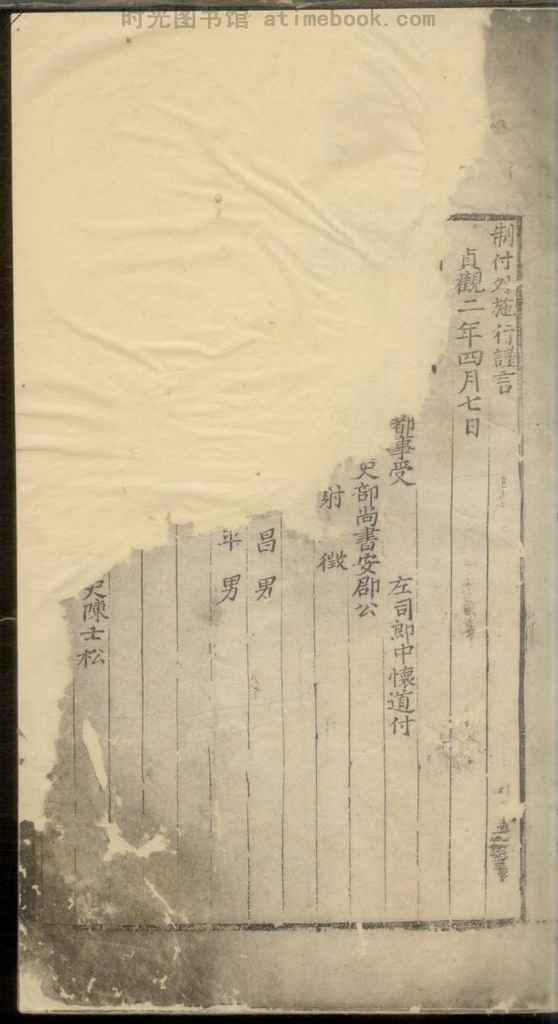 时光图书馆 atimebook.com
制付外施行謹言
貞觀二年四月七日
都事受 左司郎中懷道付
部尚書安郡公
徵
昌男
男
陳士松